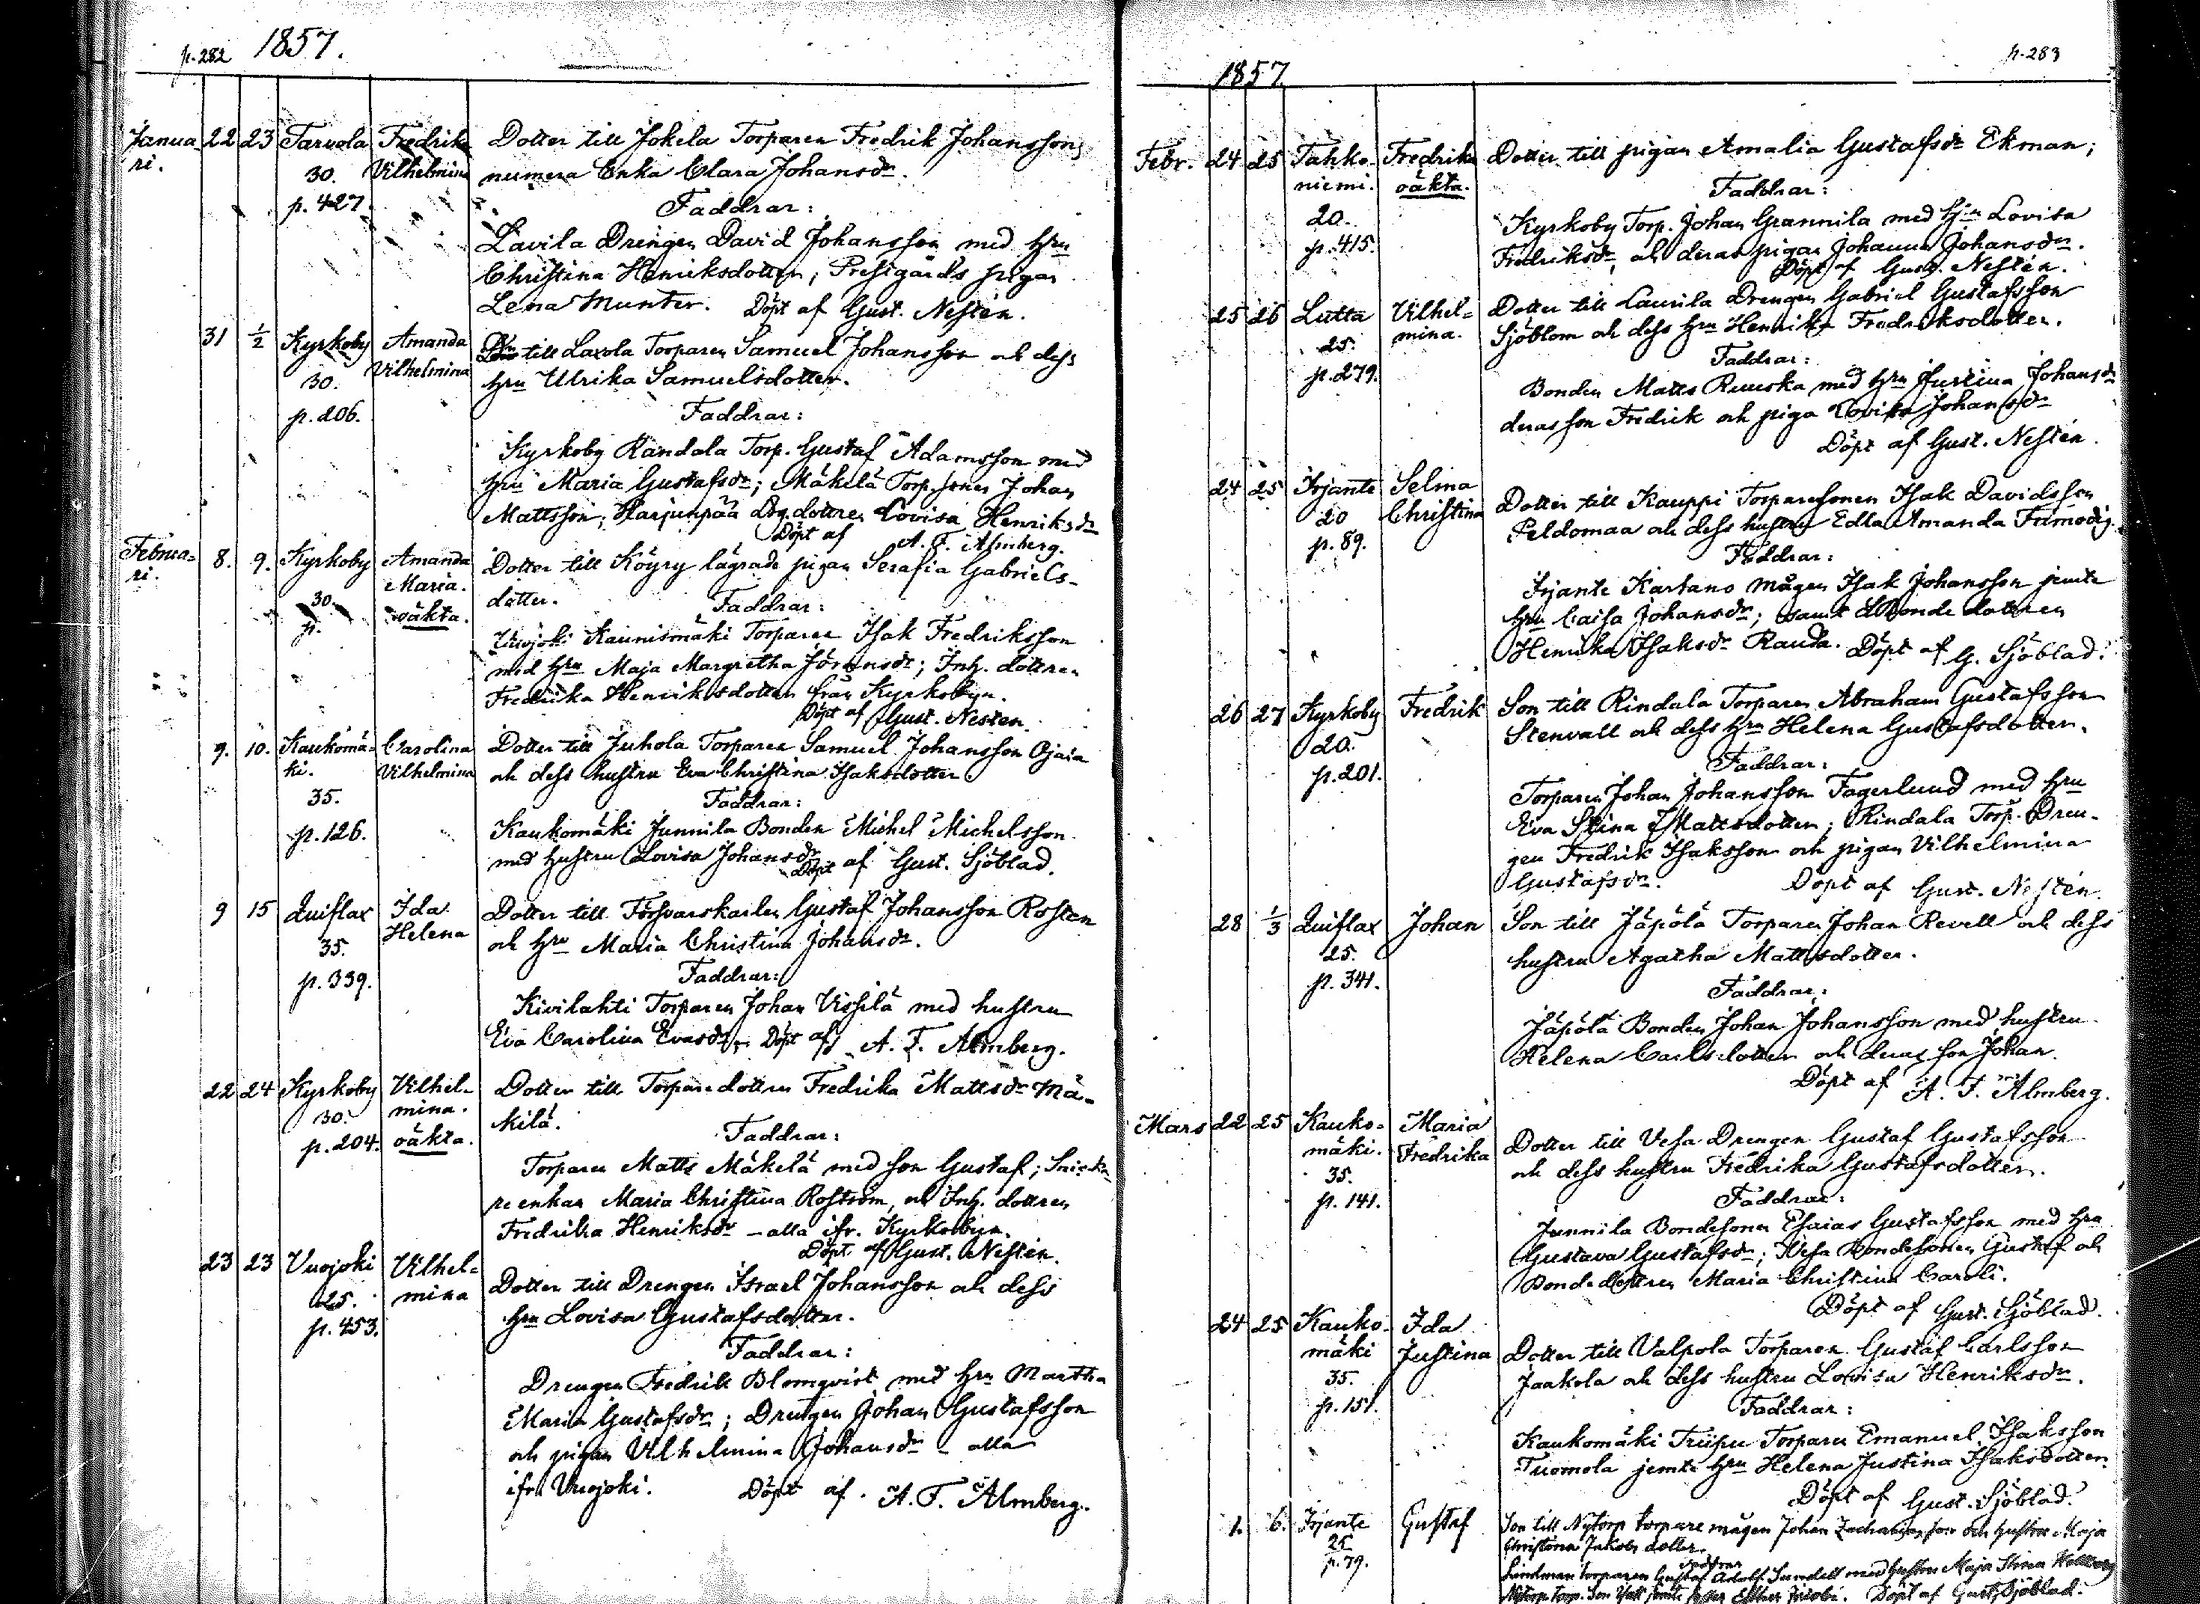 p. 282 1857.
Janua- 22 23 Tarvola Fredrika Dotter till Jokela Torparen Fredrik Johansson,
ri. 30. Vilhelmina numera Enka Clara Johansdr.
p. 427. Faddrar:
Lavila Drengen David Johansson med hru
Christina Henriksdotter; Prestgårds pigan
Lena Munter. Döpt af Gust. Nestén.
31 1/2 Kyrkoby Amanda till Laxola Torparen Samuel Johansson och dess
30. Vilhelmina hru Ulrika Samuelsdotter.
p. 206. Faddrar:
Kyrkoby Rindala Torp. Gustaf Adamsson med
hru Maria Gustafsdr; Mäkelä Torp. sonen Johan
Mattsson; Harjunpää dottren Lovisa Henriksdr
Döpt af A. F. Almberg.
Februa- 8. 9. Kyrkoby Amanda Dotter till Köyry lägrade pigan Serafia Gabriels-
ri. 30. Maria. dotter. Faddrar:
p. oäkta. Vuojoki Kaunismäki Torparen Isak Fredriksson
med hru Maja Margretha Jöransdr; Inh. dottren
Fredrika Henriksdotter från Kyrkobyn.
Döpt af Gust. Nestén.
9. 10. Kaukomä- Carolina Dotter till Juhola Torparen Samuel Johansson Ojala
ki. Vilhelmina och dess hustru Eva Christina Isaksdotter.
35. Faddrar:
p. 126. Kaukomäki Junnila Bonden Michel Michelsson
med hustru Lovisa Johansdr. Döpt af Gust. Sjöblad.
9 15 Quiflax Ida Dotter till Försvarskarlen Gustaf Johansson Rosten
35. Helena och hru Maria Christina Johansdr.
p. 339. Faddrar:
Kivilahti Torparen Johan Vissilä med hustru
Eva Carolina Evasdr. Döpt af A. F. Almberg.
22 24 Kyrkoby Vilhel- Dotter till Torparedottren Fredrika Mattsdr Mä-
30. mina. kilä.
p. 204. oäkta. Faddrar:
Torparen Matts Mäkelä med son Gustaf; Snicka-
re enkan Maria Christina Roström, och Inh. dottren
Fredrika Henriksdr – alla ifr. Kyrkobyn.
Döpt af Gust. Nestén.
23 23 Vuojoki Vilhel- Dotter till Drengen Israel Johansson och dess
25. mina hru Lovisa Gustafsdotter.
p. 453. Faddrar:
Drengen Fredrik Blomqvist med hru Martha
Maria Gustafsdr; Drengen Johan Gustafsson
och pigan Vilhelmina Johansdr – alla
ifr. Vuojoki. Döpt af A. F. Almberg.
1857. p. 283
Febr. 24 25 Tahko- Fredrika Dotter till pigan Amalia Gustafsdr Ekman;
niemi. oäkta. Faddrar:
20. Kyrkoby Torp. Johan Grannila med hru Lovisa
p. 415. Fredriksdr, och deras pigan Johanna Johansdr.
Döpt af Gust. Nestén.
25 26 Lutta Vilhel- Dotter till Laurila Drengen Gabriel Gustafsson
25. mina. Sjöblom och dess hru Henrika Fredriksdotter.
p. 279. Faddrar:
Bonden Matts Ruuska med hru Justina Johansdr
deras son Fredrik och piga Lovisa Johansdr
Döpt af Gust. Nestén.
24 25 Irjante Selma Dotter till Kauppi Torparesonen Isak Davidsson
20 Christina Peldomaa och dess hustru Edla Amanda Frimodig.
p. 89. Faddrar:
Irjante Kartano mågen Isak Johansson jemte
hru Caisa Johansdr; samt Bonde dottren
Henrika Isaksdr Rauda. Döpt af G. Sjöblad.
26 27 Kyrkoby Fredrik Son till Rindala Torparen Abraham Gustafsson
20. Stenvall och dess hru Helena Gustafsdotter.
p. 201. Faddrar:
Torparen Johan Johansson Fagerlund med hru
Eva Stina Mattsdotter; Rindala Torp. Dren-
gen Fredrik Isaksson och pigan Vilhelmina
Gustafsdr. Döpt af Gust. Nestén.
28 1/3 Quiflax Johan Son till Jäpölä Torparen Johan Revell och dess
25. hustru Agatha Mattsdotter.
p. 341. Faddrar:
Jäpölä Bonden Johan Johansson med hustru
Helena Carlsdotter och deras son Johan.
Döpt af A. F. Almberg.
Mars 22 25 Kauko- Maria Dotter till Vesa Drengen Gustaf Gustafsson
mäki. Fredrika och dess hustru Fredrika Gustafsdotter.
35. Faddrar:
p. 141. Junnila Bondesonen Esaias Gustafsson med hru
Gustava Gustafsdr; Vesa Bondesonen Gustaf och
Bondedottren Maria Christina Caroli.
Döpt af Gust. Sjöblad.
24 25 Kauko- Ida Dotter till Valpola Torparen Gustaf Carlsson
mäki Justina Jaakola och dess hustru Lovisa Henriksdr.
35. Faddrar:
p. 151. Kaukomäki Triipu Torparen Emanuel Isaksson
Tuomola jemte hru Helena Justina Isaksdotter.
Döpt af Gust. Sjöblad.
1. 6. Irjante Gustaf Son till Nytorp torpare mågen Johan Zachariasson och hustru Maja
25 Christina Jakobs dotter.
p. 79. Faddrar
Lindman torparen Gustaf Adolf Sundell med hustru Maja Stina
Nytorp torp. Son Döpt af Gust. Sjöblad.